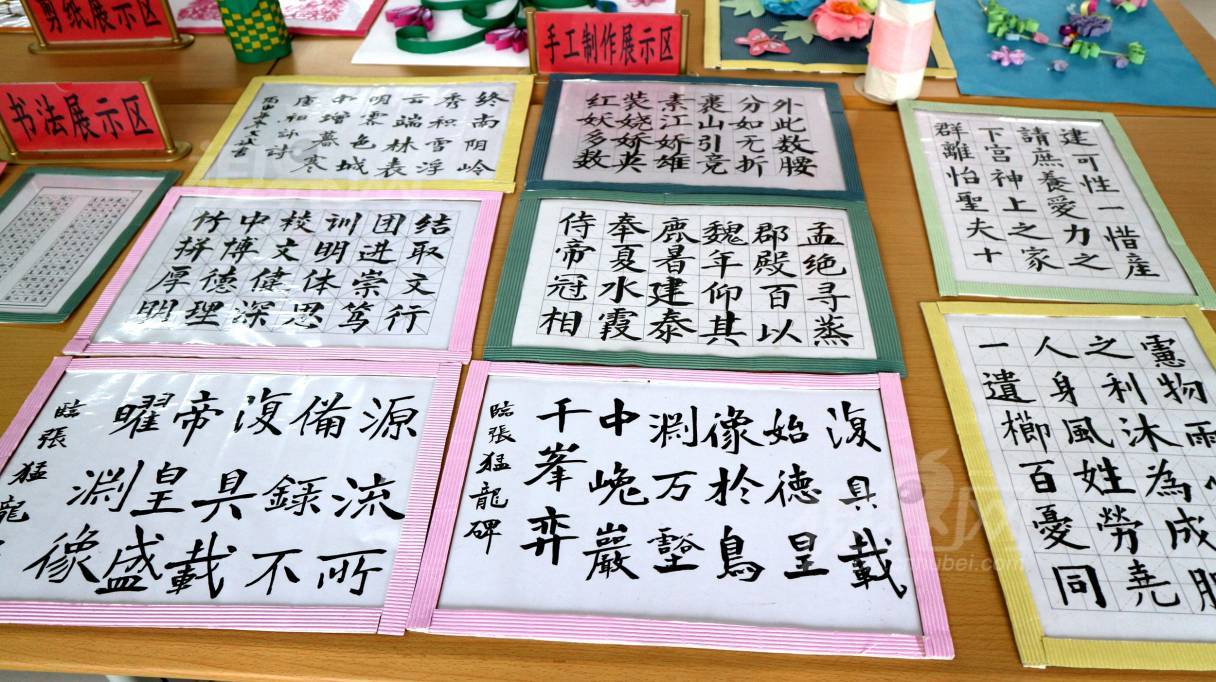 剪纸展示区
手工制作展示区
书法展示区
终南阴岭
秀积雪浮
云端林表
明霁色城
中增暮寒
唐祖咏诗
外此数腰
分如无折
裹山引竞
素江娇雄
装娆娇英
红妖多数
建可性一惜産
請庶養愛力之
下宫神上之家
群離怡聖夫十
竹中校训团结
拼博文明进取
厚德偉体崇文
明理深思笃行
孟绝寻蒸
郡殿百以
魏年仰其
鹿暑建泰
奉夏水霞
侍帝冠相
憲物雨
之利沐為成
人身風姓勞堯
一遺櫛百憂同
源流所
備録不
復具載
帝皇盛
曜渊像
臨張猛龍
復具載
始德皇
像於鳥
渊万壑
中巖
千峯弈
臨張猛龍碑